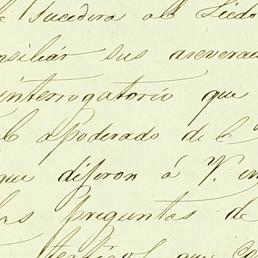 sucediera al Licdo
sus asevera
interrogatorio que
el Apoderado de
que dijeron á V.
las preguntas de
que